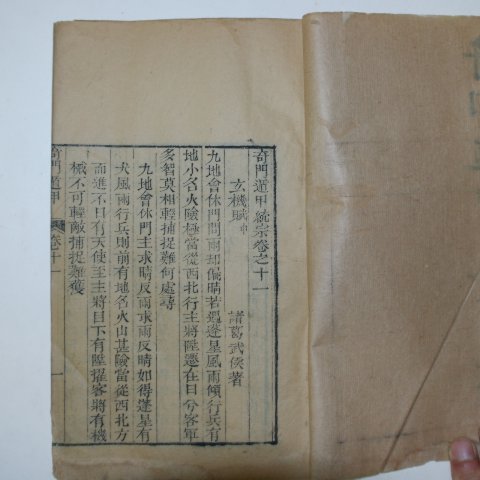 奇門遁甲統宗卷之十一
諸葛武侯著
玄機賦
九地會休門問雨却傷晴若遇逢星風雨傾行兵有
地小名火險極當從西北行主將陞遷在日兮客軍
多智莫相輕捕捉難何處尋
九地會休門主求晴反雨求雨反晴如得蓬星有
大風雨行兵則前有地名火山甚險當從西北方
而進不日有天使至主將目下有陞擢客將有機
械不可輕敵捕捉難獲
奇門遁甲
卷十一
一